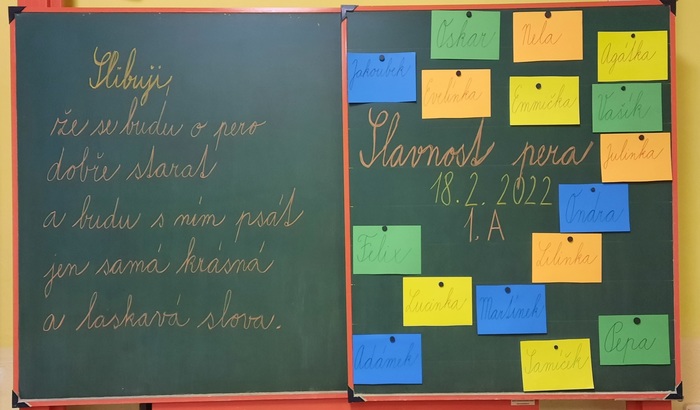 Slibuji,
že se budu o pero
dobře starat
a budu s ním psát
jen samá krásná
a laskavá slova.
Oskar
Nela
Agátka
Jakoubek
Evelínka
Emmička
Vašík
Slavnost pera
Julinka
18.2. 2022
Ondra
1. A
Felix
Lilinka
Lucinka
Martínek
Pepa
Adámek
Samíček